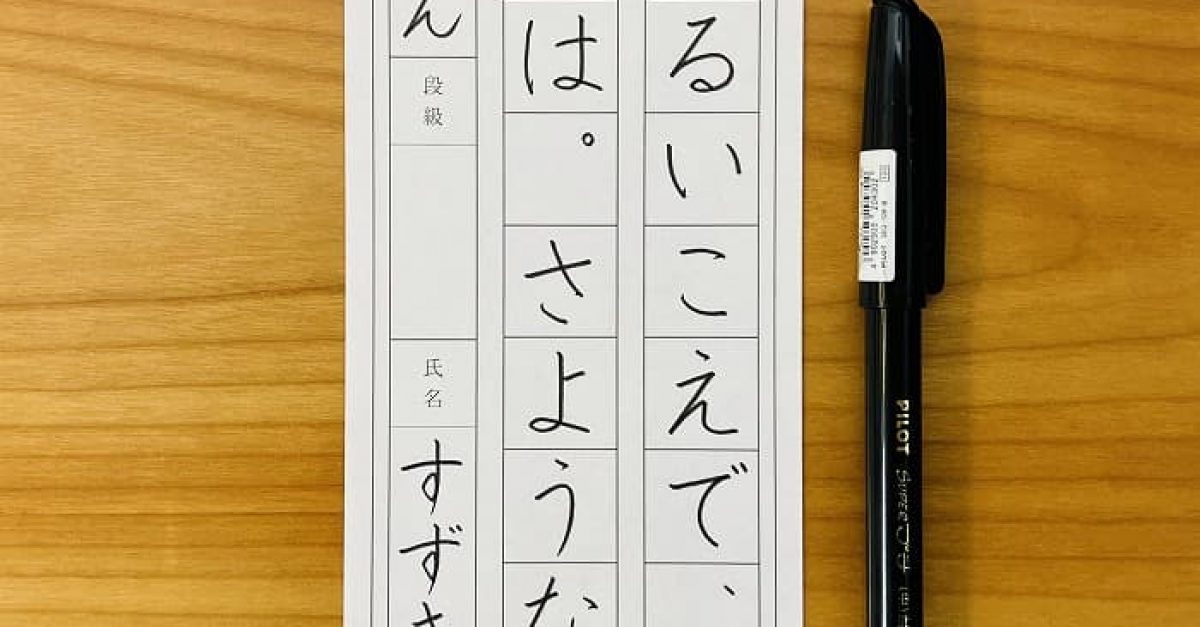 るいこえで、
は。さような
ん
段級
氏名
すずき
PILOT